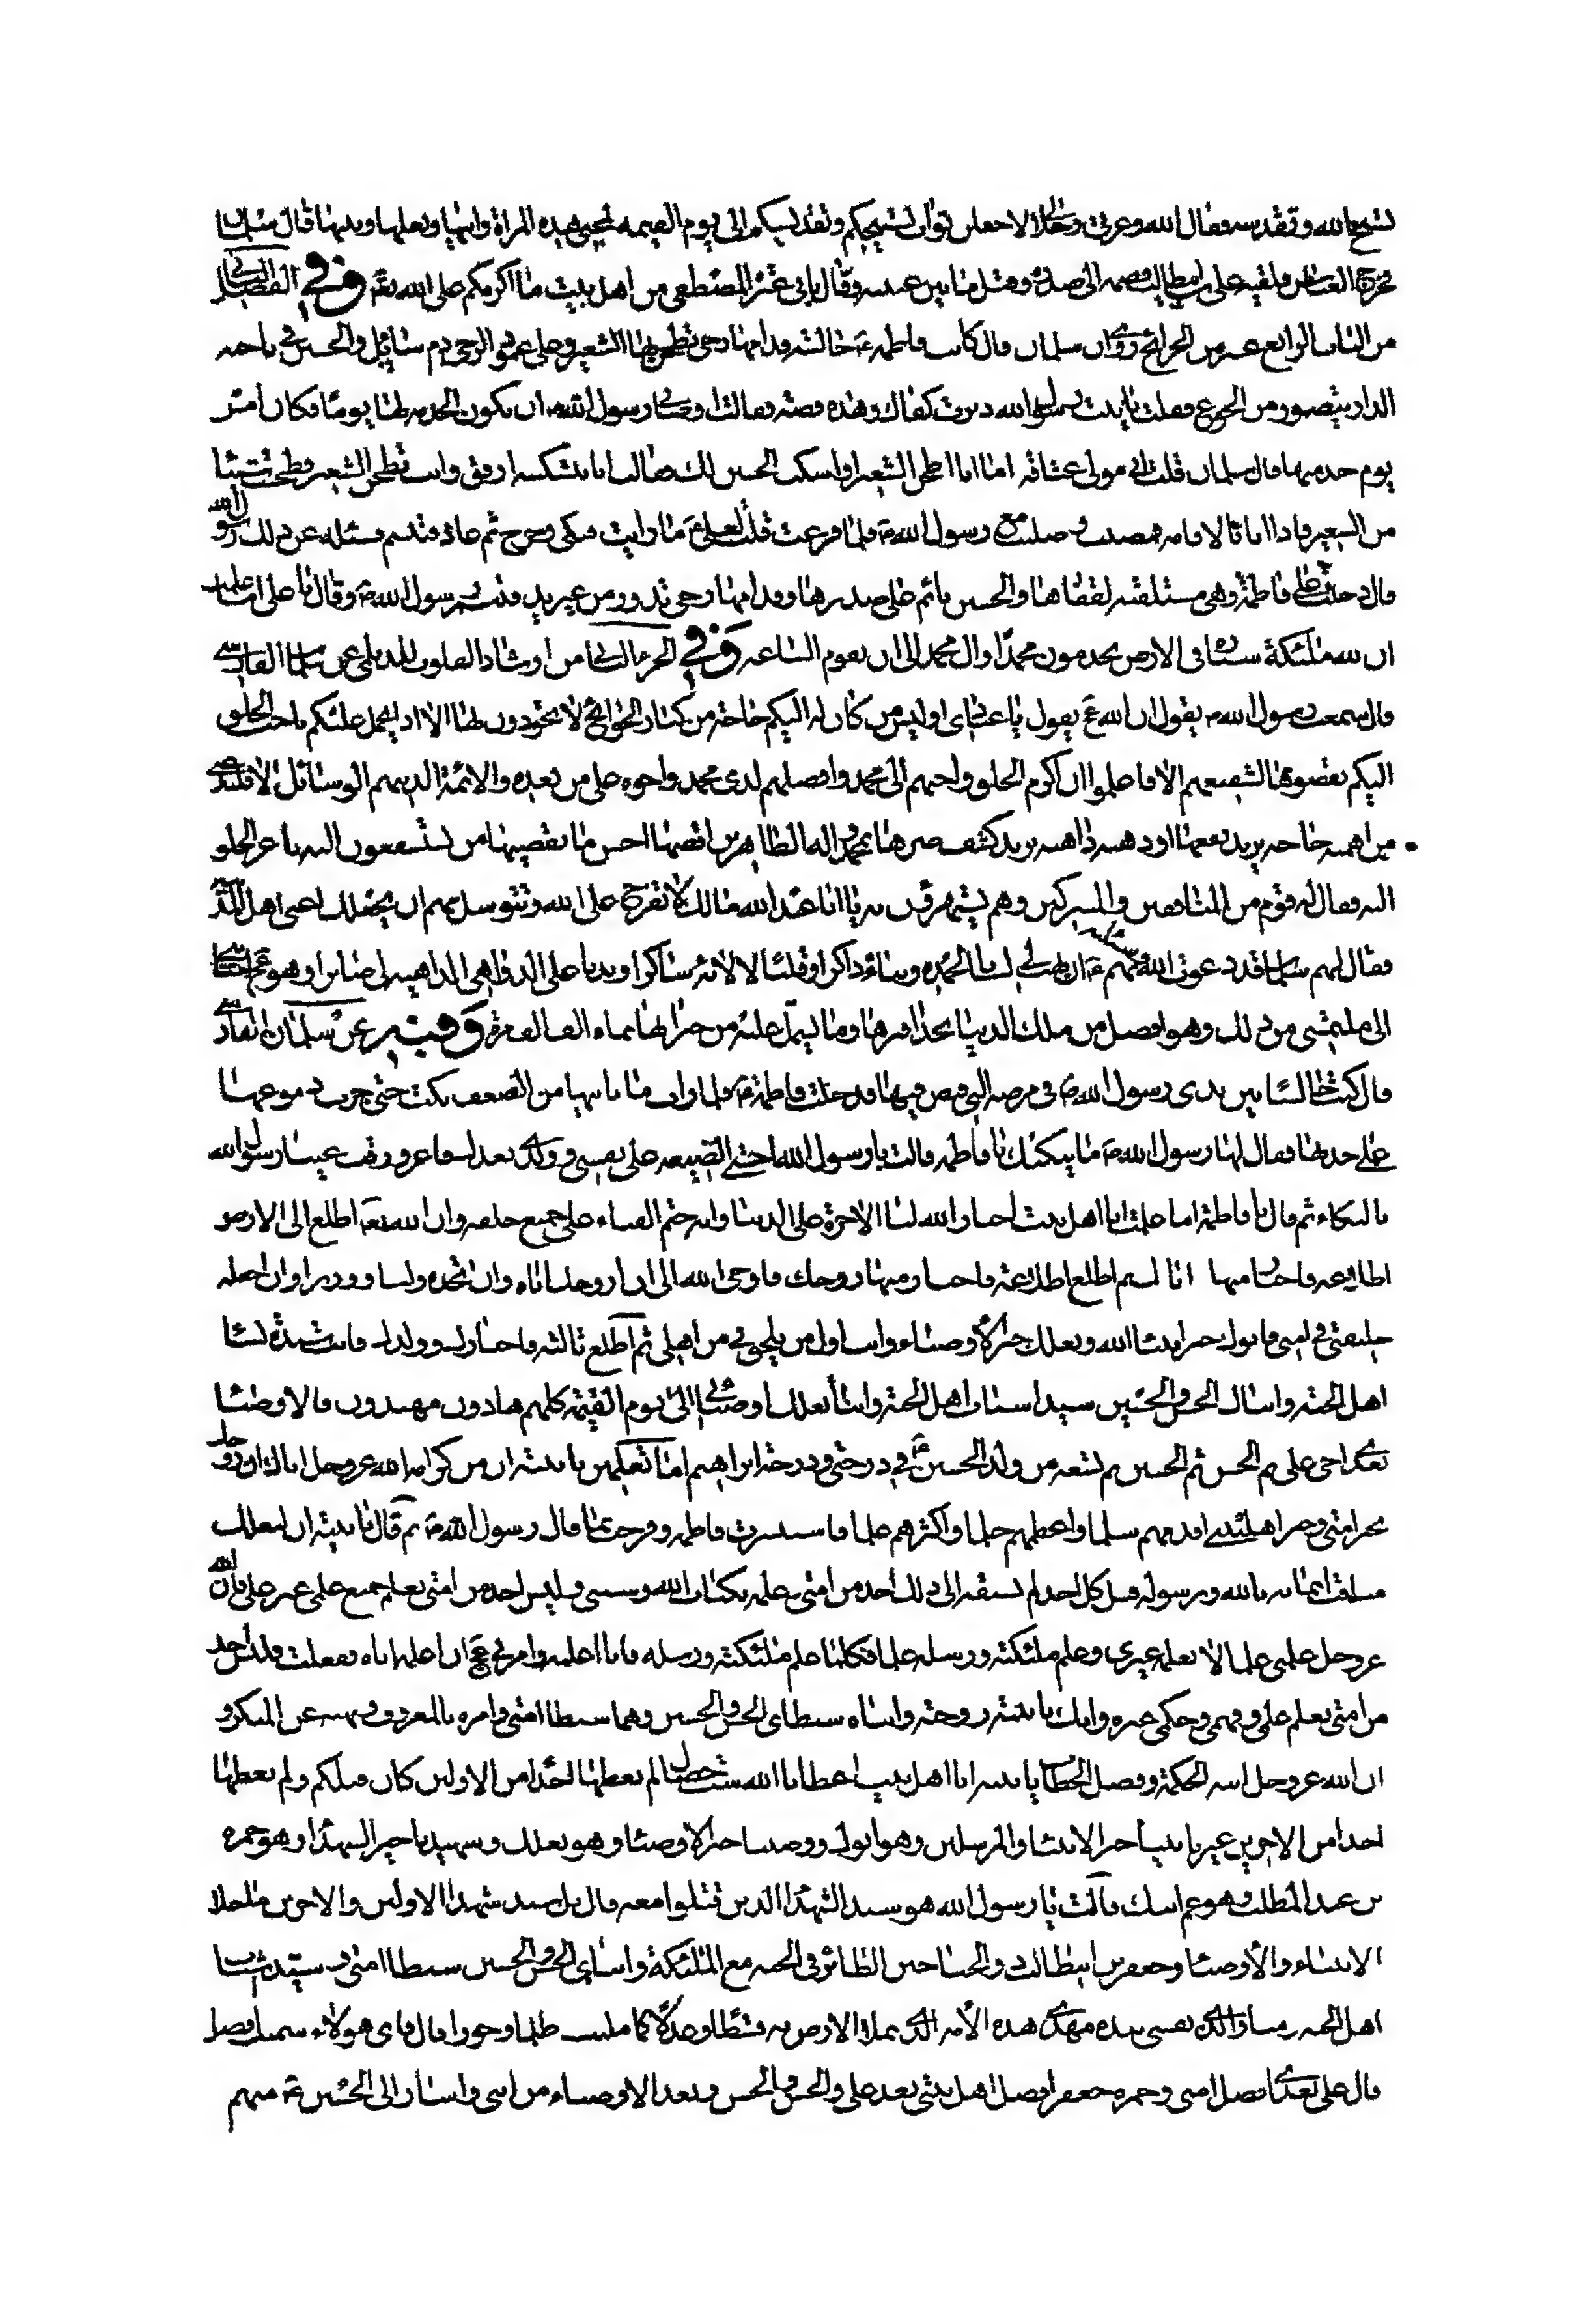 تسبح الله وتقدسه فقال الله وعزتي وجلالي لاجعلن ثواب تسبيحكم وتقديسكم الى يوم القيمه لمحبي هذه المراة وابيها وبعلها وبنيها قال سلمان
فخرج العباس فلقيه علي بن ابيطالب فضمه الى صدره وقبل ما بين عينيه وقال بابي عترة المصطفى من اهل بيت ما اكرمكم على الله تعالى وفي الفصل
من الباب الرابع عشر من الخرايج روى ان سلمان قال كانت فاطمة ع جالسة قدامها رحى تطحن بها الشعير وعلى عمود الرحى دم سائل والحسين في ناحيه
الدار يتضور من الجوع فقلت يا بنت رسول الله دبرت كفاك وهذه فضة فقالت اوصاني رسول الله ص ان يكون الخدمة لها يوما فكان امس
يوم خدمتها قال سلمان قلت اني مولى عتاقه اما انا اطحن الشعير او اسكت الحسين لك فقالت انا بتسكيته ارفق وانت تطحن الشعير فطحنت شيئا
من الشعير فاذا انا بالاقامه فمضيت وصليت مع رسول الله ص فلما فرغت قلت لعلي ع ما رايت فبكى وخرج ثم عاد فتبسم فسئله عن ذلك رسول الله
قال دخلت على فاطمة وهي مستلقيه لقفاها والحسين نائم على صدرها وقدامها رحى تدور من غير يد فتبسم رسول الله ص وقال يا علي اما علمت
ان لله ملئكة سيارة في الارض يخدمون محمدا وال محمد الى ان تقوم الساعه وفي الجزء الثاني من ارشاد القلوب للديلمي عن سلمان الفارسي
قال سمعت رسول الله ص يقول ان الله عز يقول يا عبادي اوليس من كان له اليكم حاجة من كبار الحوائج لا تجودون بها الا ان يتحمل عليكم باحب الخلق
اليكم تقضونها لشفيعهم الا فاعلموا ان اكرم الخلق واحبهم الي محمد وافضلهم لدي محمد واخوه علي من بعده والائمة الذين هم الوسائل الا فليدعني
من اهمته حاجه يريد نفعها او دهته داهيه يريد كشف ضرها بمحمد واله الطاهرين اقضها احسن ما يقضيها من تستشفعون اليه باعز الخلق
اليه فقال له قوم من المنافقين والمشركين وهم يستهزؤن به يا ابا عبد الله مالك لا تقترح على الله وتتوسل بهم ان يجعلك اغنى اهل المدينة
فقال لهم سلمان قد دعوت الله بهم ان يجعلني لسانا لحمده وثنائه ذاكرا وقلبا لالائه شاكرا وبدنا على الدواهي الداهيه لي صابرا وهو عز اجابني
الى ملتمسي من ذلك وهو افضل من ملك الدنيا بحذافيرها وما يشتمل عليه من خيراتها بماة الف الف مرة وفيه عن سلمان الفارسي
قال كنت جالسا بين يدي رسول الله ص في مرضه التي قبض فيها فدخلت فاطمة ع فلما رات ما بابيها من الضعف بكت حتى جرت دموعها
على خديها فقال لها رسول الله ص ما يبكيك يا فاطمه قالت يا رسول الله اخشى الضيعه على نفسي وولدي بعدك فاغرورقت عينا رسول الله
بالبكاء ثم قال يا فاطمة اما علمت انا اهل بيت اختار الله لنا الاخرة على الدنيا وانه حتم الفناء على جميع خلقه وان الله تعالى اطلع الى الارض
اطلاعه فاختار منها اباك ثم اطلع اطلاعة فاختار منها زوجك فاوحى الله الي ان ازوجك اياه وان اتخذه وليا ووزيرا وان اجعله
خليفتي في امتي فابوك خير انبياء الله وبعلك خير الاوصياء وانت اول من يلحق بي من اهلي ثم اطلع ثالثة فاختارك وولدك فانت سيدة نساء
اهل الجنة وابناك الحسن والحسين سيدا شباب اهل الجنة وابناء بعلك اوصيائي الى يوم القيمة كلهم هادون مهديون فالاوصياء
بعدي اخي علي ثم الحسن ثم الحسين ثم تسعة من ولد الحسين ع في درجتي ودرجة ابراهيم اما تعلمين يا بنية ان من كرامة الله عز وجل اياك ان زوجك
خير امتي وخير اهل بيتي اقدمهم سلما واعظمهم حلما واكثرهم علما فاستبشرت فاطمه وفرحت بما قال رسول الله ص ثم قال يا بنية ان لبعلك
مناقب ايمانه بالله وبرسوله قبل كل احد لم يسبقه الى ذلك احد من امتي وعلمه بكتاب الله وسنتي وليس احد من امتي يعلم جميع علمي غير علي فان الله
عز وجل علمني علما لا يعلمه غيري وعلم ملئكته ورسله علما فكلما علم ملئكته ورسله فانا اعلمه وامرني عز ان اعلمه اياه ففعلت فليس احد
من امتي يعلم علمي وفهمي وحكمي غيره وانك يا بنية زوجته وابناه سبطاي الحسن والحسين وهما سبطا امتي وامره بالمعروف ونهيه عن المنكر و
ان الله عز وجل اتيه الحكمة وفصل الخطاب يا بنية انا اهل بيت اعطانا الله ست خصال لم يعطها احدا من الاولين كان قبلكم ولم يعطها
احدا من الاخرين غيرنا نبينا خير الانبياء والمرسلين وهو ابوك ووصينا خير الاوصياء وهو بعلك وشهيدنا خير الشهداء وهو حمزه
بن عبد المطلب وهو عم ابيك قالت يا رسول الله هو سيد الشهداء الذين قتلوا معه قال بل سيد شهداء الاولين والاخرين ما خلا
الانبياء والاوصياء وجعفر بن ابيطالب ذو الجناحين الطائر في الجنه مع الملئكة وابناي الحسن والحسين سبطا امتي وسيدا شباب
اهل الجنه ومنا والذي نفسي بيده مهدي هذه الامه الذي يملا الارض به قسطا وعدلا كما ملئت ظلما وجورا قال فاي هولاء سميت افضل
قال علي بعدي افضل امتي وحمزه وجعفر افضل اهل بيتي بعد علي والحسن والحسين وبعد الاوصياء من ابني واشار الى الحسين ع منهم